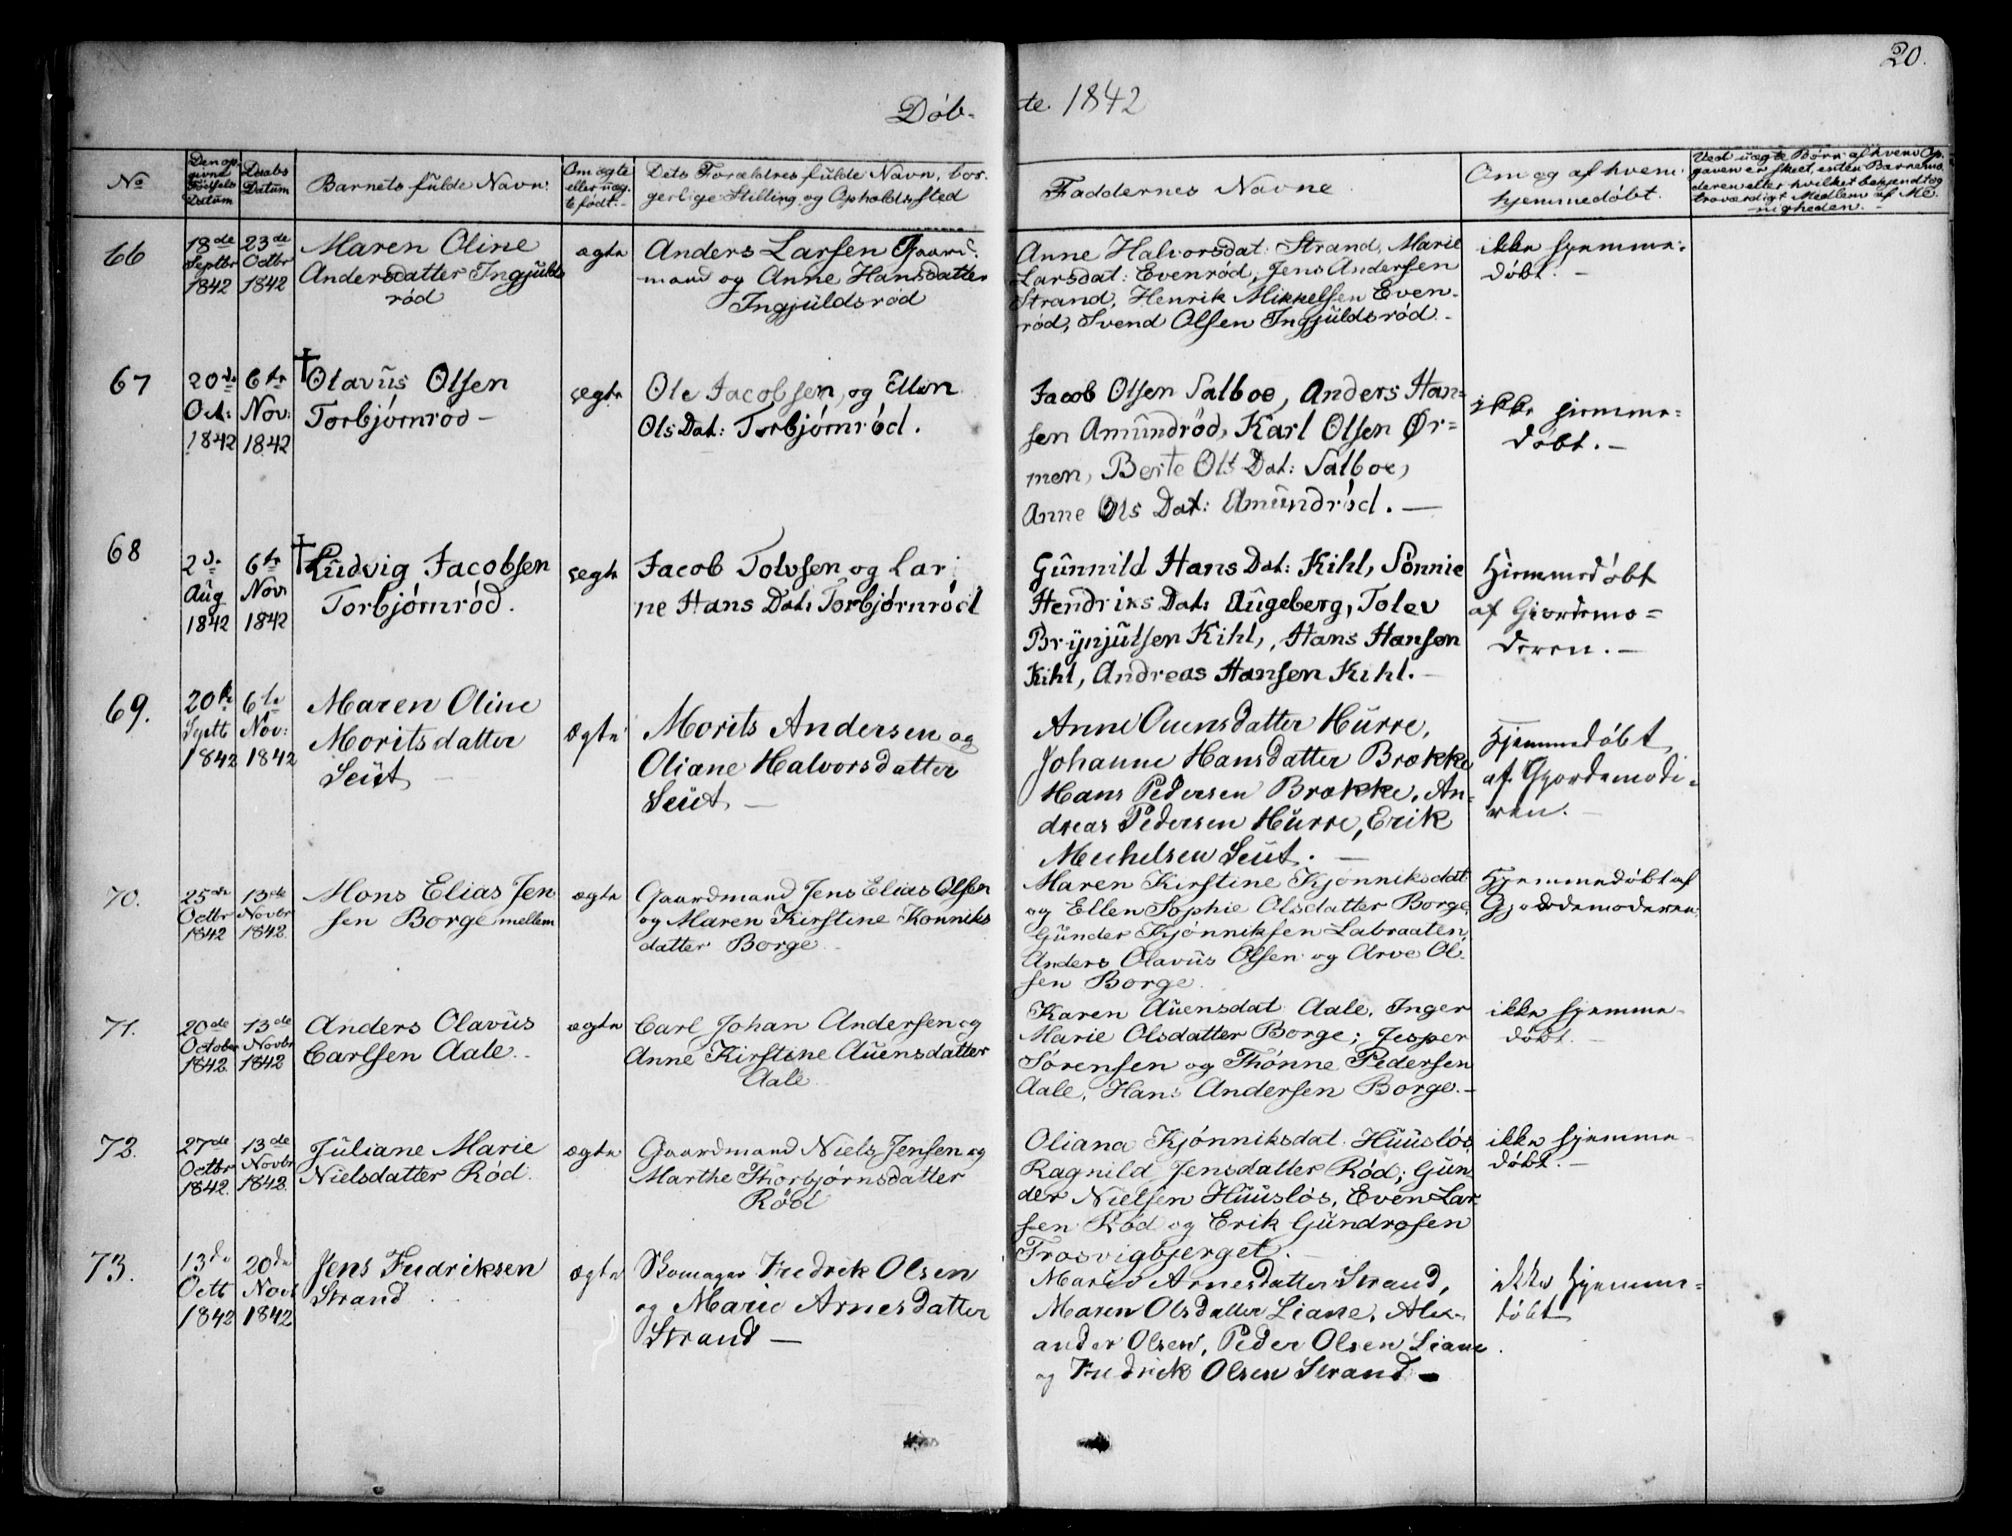 20.
Döb-
te. 1842
No
Den op-
givne
Födsels
Datum
Daabs
Datum
Barnets fulde Navn.
Om ægte
eller uæg-
te født.
Dets Forældres fulde Navn, bor-
gerlige Stilling og Opholdssted
Faddernes Navne
Om og af hvem
hjemmedöbt.
Ved uægte Børn: af hvem Op-
gaven er skeet, enten Barnemo-
deren eller hvilket bekjendt og
troværdigt Medlem af Me-
nigheden.
66
18de
Septbr
1842
23de
Octbr
1842
Maren Oline
Andersdatter Ingjulds
röd
ægte
Anders Larsen Gaard-
mand og Anne Hansdatter
Ingjuldsröd
Anne Halvorsdat: Strand, Marie
Larsdat: Evenröd, Jens Andersen
Strand, Henrik Mikkelsen Even-
röd, Svend Olsen Ingjuldsröd.
ikke hjemme-
döbt.
67
20de
Oct:
1842
6te
Nov:
1842
† Olavus Olsen
Torbjörnröd
ægte
Ole Jacobsen, og Ellen
Ols Dat: Torbjörnröd.
Jacob Olsen Salboe, Anders Han-
sen Amundröd, Karl Olsen Ør-
men, Berte Ols Dat: Salboe,
Anne Ols Dat: Amundröd.
ikke hjemme-
döbt.
68
2de
Aug
1842
6te
Nov:
1842
† Ludvig Jacobsen
Torbjörnröd.
ægte
Jacob Tolvsen og Lar
ne Hans Dat: Torbjörnröd
Gunnild Hans Dat: Kihl, Sönnie
Hendriks Dat: Augeberg, Tolev
Brynjulsen Kihl, Hans Hansen
Kihl, Andreas Hansen Kihl.
Hjemmedöbt
af Giordemo-
deren.
69.
20de
Septb
1842
6te
Nov:
1842
Maren Oline
Moritsdatter
Seüt
ægte
Morits Andersen og
Oliane Halvorsdatter
Seüt
Anne Ouensdatter Hurre,
Johanne Hansdatter Brække
Hans Pedersen Brække, An-
dreas Pedersen Hurre, Erik
Mechelsen Seüt.
Hjemmedöbt
af Gjordemode-
ren.
70.
25de
Octbr
1842
13de
Novbr
1842.
Mons Elias Jen
sen Borge mellem
ægte
Gaardmand Jens Elias Olsen
og Maren Kirstine Könniks
datter Borge
Maren Kirstine Kjönniksdat
og Ellen Sophie Olsdatter Borge
Gunder Kjönniksen Labraaten,
Anders Olavus Olsen og Arve Ol
sen Borge.
Hjemmedöbt af
Gjordemoderen.
71.
20de
October
1842.
13de
Novbr
1842
Anders Olavus
Carlsen Aale.
ægte
Carl Johan Andersen og
Anne Kirstine Auensdatter
Aale
Karen Auensdat Aale, Inger
Marie Olsdatter Borge; Jesper
Sörensen og Thönne Pedersen
Aale, Hans Andersen Borge.
ikke hjemme-
döbt.
72.
27de
Octbr
1842.
13de
Novbr
1842.
Juliane Marie
Nielsdatter Röd.
ægte
Gaardmand Niels Jensen og
Marthe Thorbjörnsdatter
Röd
Oliana Kjönniksdat Huuslös,
Ragnild Jensdatter Röd; Gun-
der Nielsen Huuslös, Even Lar
sen Röd og Erik Gundrosen
Trosvigbjerget.
ikke hjemme
döbt.
73.
13de
Octb
1842
20de
Nov:
1842
Jens Fredriksen
Strand
ægte
Skomager Fredrik Olsen
og Marie Arnesdatter
Strand
Marie Arnesdatter Strand,
Maren Olsdatter Liane, Alex-
ander Olsen, Peder Olsen Liane
og Fredrik Olsen Strand
ikke hjemme-
döbt